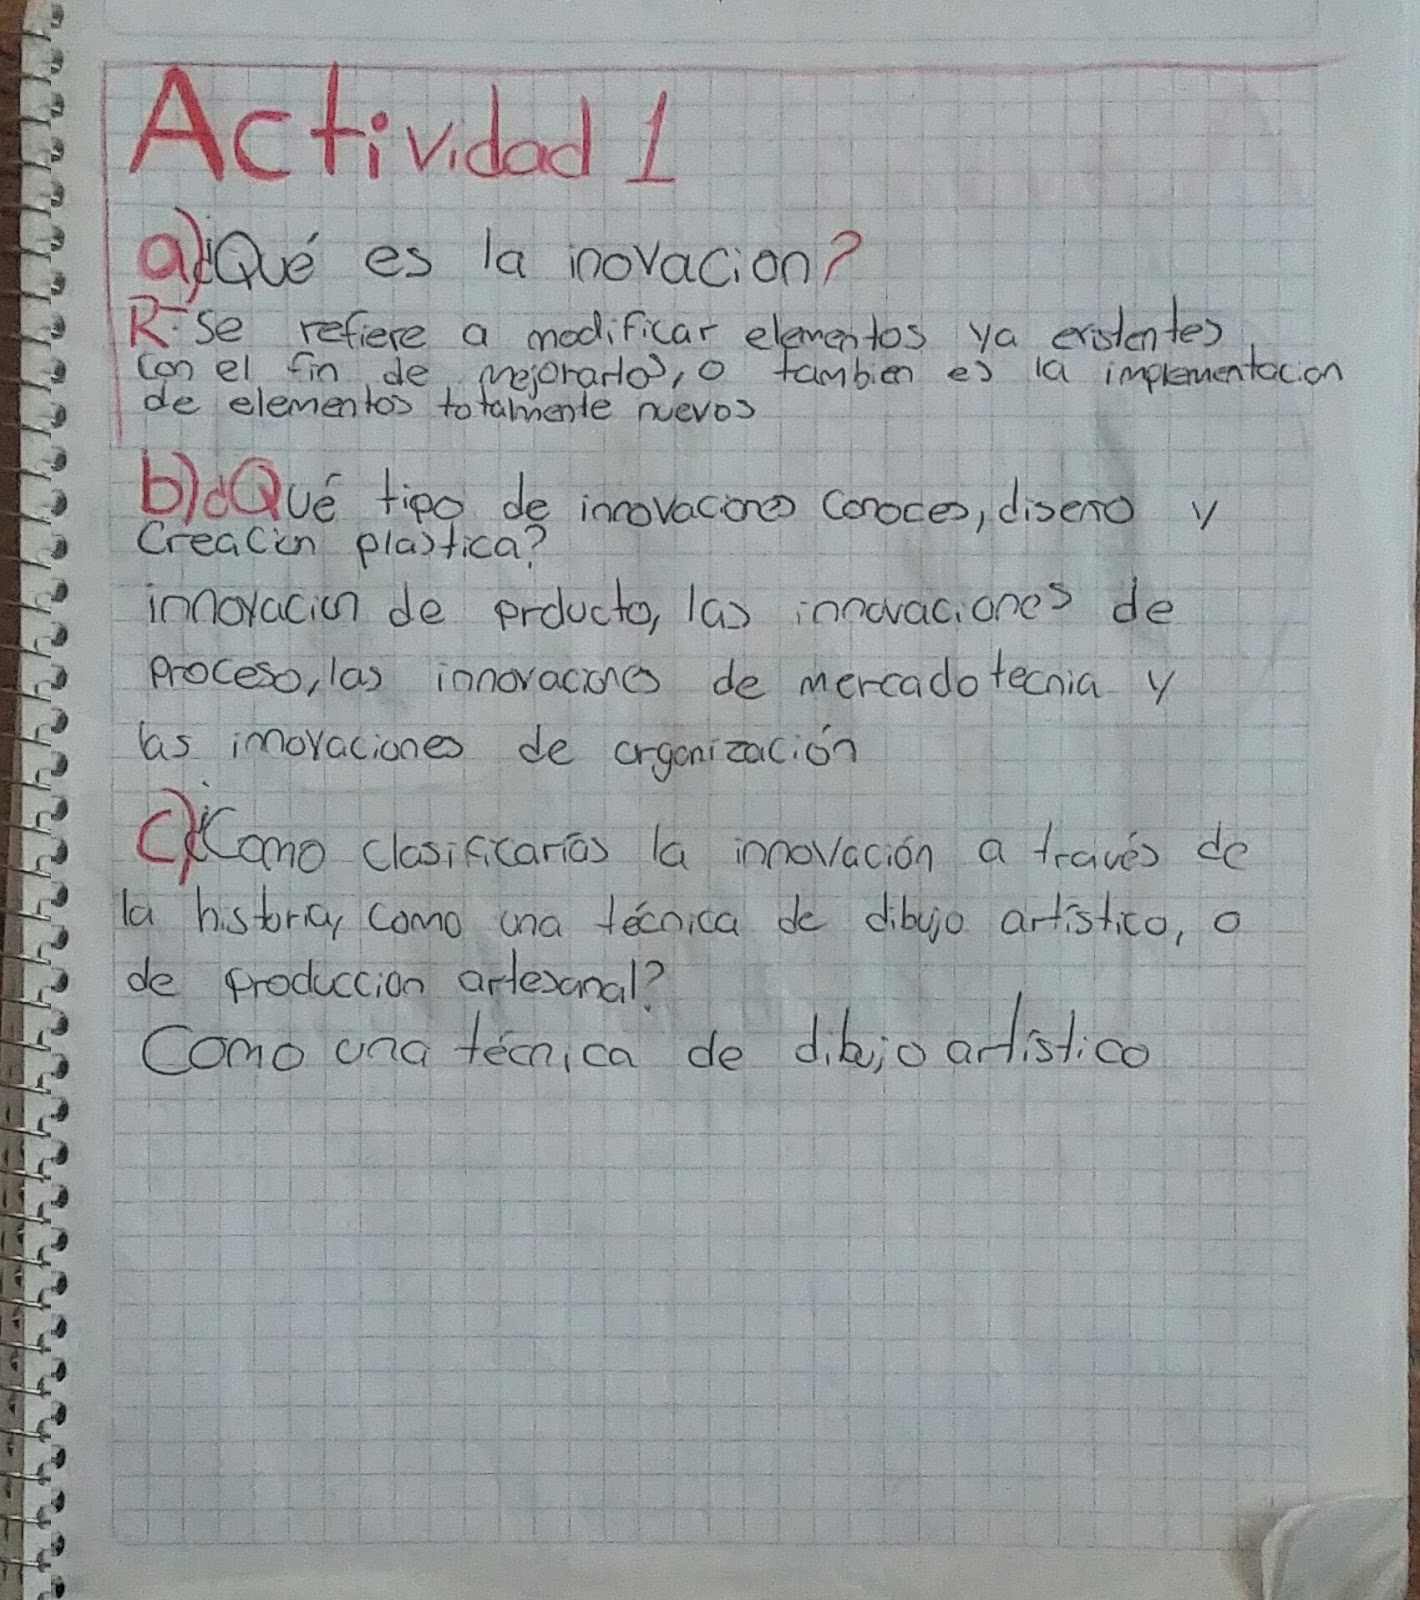 Actividad 1
a)¿Qué es la inovacion?
R- Se refiere a modificar elementos ya existentes
con el fin de mejorarlos, o tambien es la implementacion
de elementos totalmente nuevos
b)¿Qué tipo de innovaciones conoces, diseño y
Creacion plastica?
innovacion de prducto, las innovaciones de
proceso, las innovaciones de mercadotecnia y
las innovaciones de organización
c)¿Como clasificarías la innovación a través de
la historia, como una técnica de dibujo artístico, o
de produccion artesanal?
Como una técnica de dibujo artístico